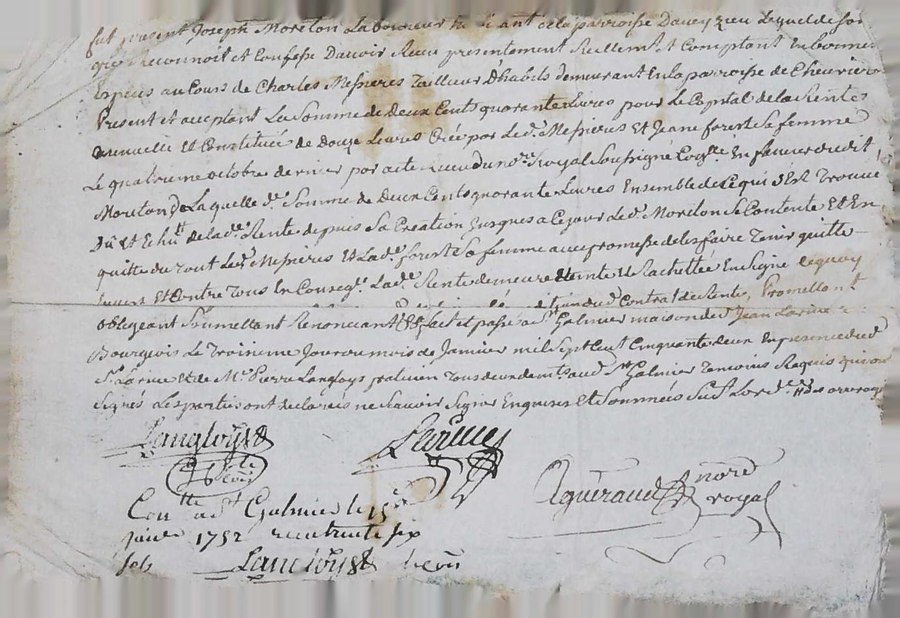 fut present Joseph Morélon Laboureur de la parroisse Daveyzieu Lequel de son
gré reconnoit et Confesse D'avoir Reçu presentement Réellemt et Comptant En bonnes
Espèces au Cours de Charles Messieres Tailleur D'habits demeurant En la parroisse de Chevrieres
Present et acceptant La Somme de Deux Cents quarante Livres pour Le Capital de la Rente
annuelle et Constituée de Douze Livres Créé par Led. Messieres Et Jeane forest Sa femme
Le quatrieme octobre dernier par acte Reçu du nore Royal Soussigné En faveur dudit
Morélon De Laquelle de. Somme de Deux Cents quarante Livres Ensemble de Ce qui S'Est Trouvé
Dû et Echu de lade. Rente depuis Sa Creation Jusques a Ce jour Led. Morélon Se Contente Et En
quitte du Tout Led. Messieres Et Lade. forest Sa femme avec promesse de les faire Tenir quitte
Envers Et Contre Tous En Conseqce. Lade. Rente demeure Eteinte Et Rachettée En Signe de quoy
du Contrat de Rente, Promettant
obligeant Soumettant Renonçant Et fait et passé a St Galmier maison de Sr Jean Larue
Bourgeois Le Troisieme Jour du mois de Janvier mil Sept Cent Cinquante deux En presence dud.
Sr Larue Et de Me Pierre Langloys praticien Tous deux demts aud. St Galmier Temoins Requis qui ont
Signés Les parties ont declarés ne Scavoir Signer Enquises Et Sommées
Langloys
Larue
Agueraud nore royal
Con. a St Galmier le 15e
janvr 1752 reçu trente six
sols Langloys